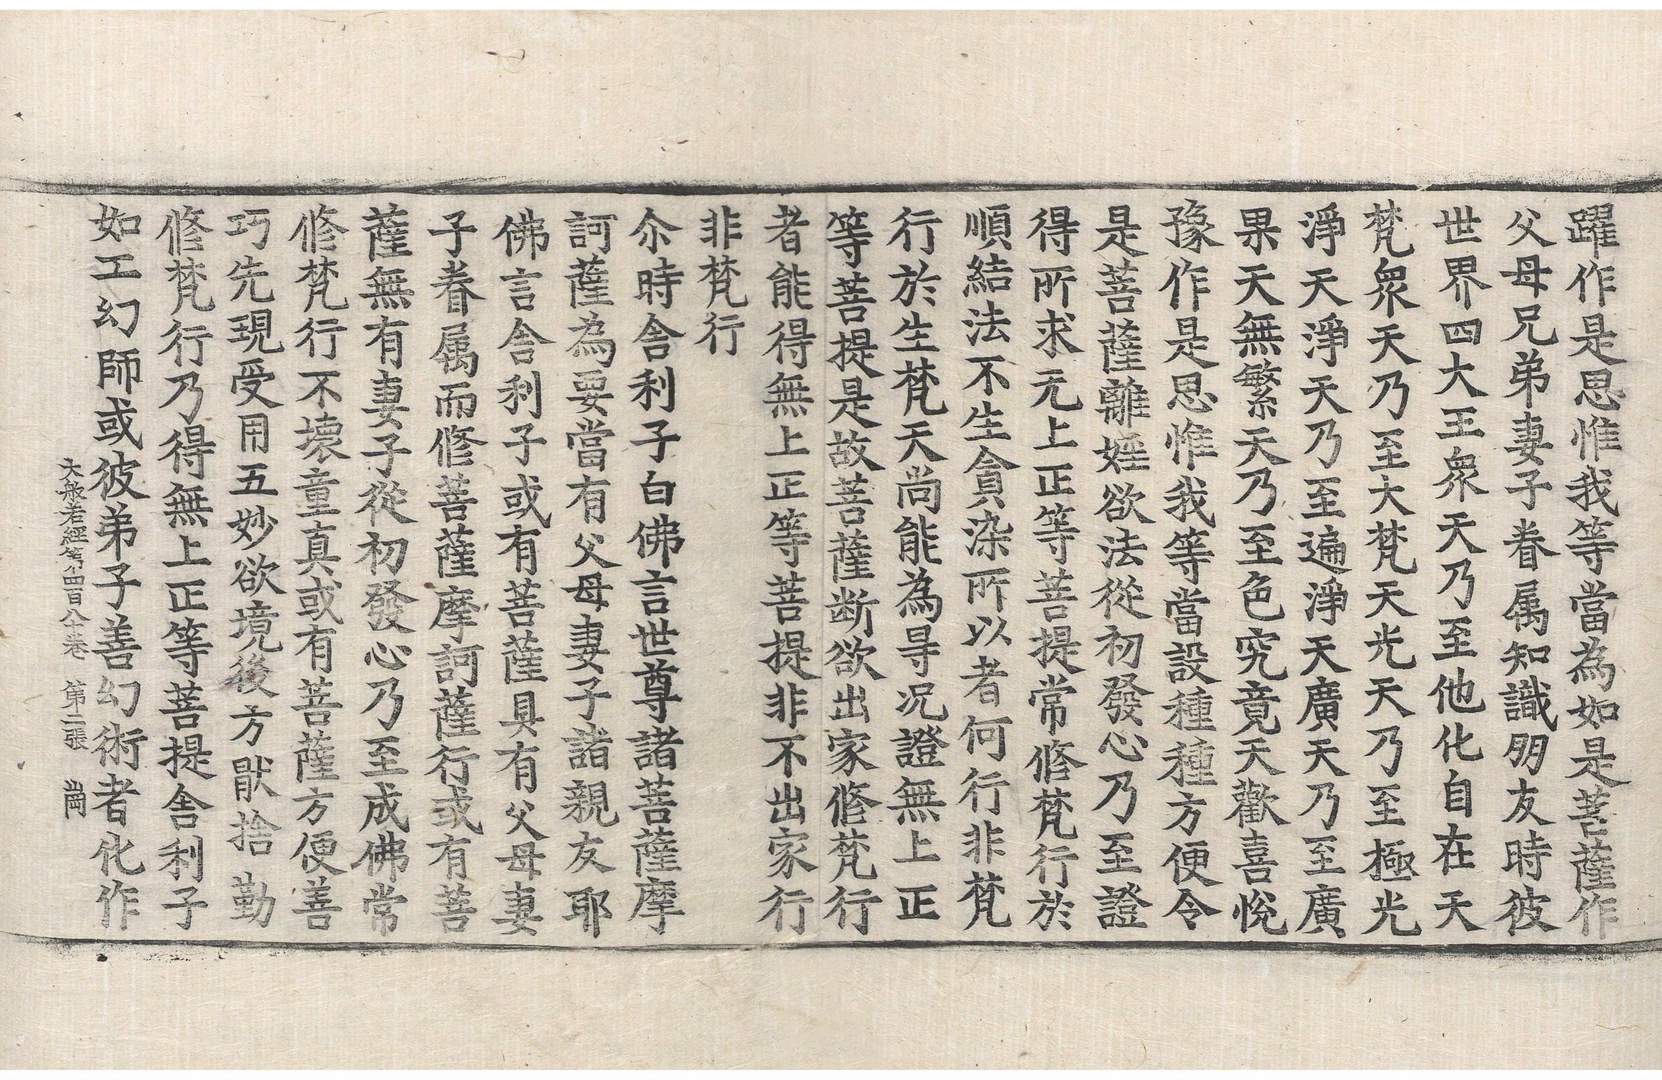 躍作是思惟我等當為如是菩薩作
父母兄弟妻子眷属知識朋友時彼
世界四大王衆天乃至他化自在天
梵衆天乃至大梵天光天乃至極光
淨天淨天乃至遍淨天廣天乃至廣
果天無繁天乃至色究竟天歡喜悅
豫作是思惟我等當設種種方便令
是菩薩離婬欲法從初發心乃至證
得所求无上正等菩提常修梵行於
順結法不生貪染所以者何行非梵
行於生梵天尚能為㝵况證無上正
等菩提是故菩薩断欲出家修梵行
者能得無上正等菩提非不出家行
非梵行
尒時舍利子白佛言世尊諸菩薩摩
訶薩為要當有父母妻子諸親友耶
佛言舍利子或有菩薩具有父母妻
子眷属而修菩薩摩訶薩行或有菩
薩無有妻子從初發心乃至成佛常
修梵行不壞童真或有菩薩方便善
巧先現受用五妙欲境後方猒捨勤
修梵行乃得無上正等菩提舍利子
如工幻師或彼弟子善幻術者化作
大般若經第四百八十卷　第二張　崗